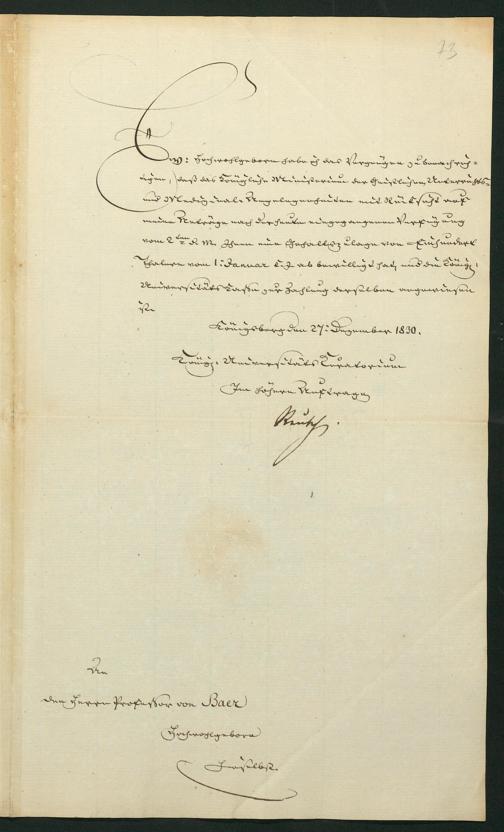 73
Ew: Hochwohlgeboren habe ich das Vergnügen zu benachrich-
tigen, daß das Königliche Ministerium der Geistlichen Unterrichts-
und Medizinal Angelegenheiten mit Rücksicht auf
meine Anträge nach der heute eingegangenen Verfügung
vom 2ten d. M. Ihnen eine Gehaltszulage von Einhundert
Thalern vom 1. Januar k. J. ab bewilligt hat, und die Königl:
Universitäts Kasse zur Zahlung derselben angewiesen
ist.
Königsberg den 27. Dezember 1830.
Königl. Universitäts Curatorium
Im höhern Auftrage
Reusch.
An
den Herrn Professor von Baer
Hochwohlgeboren
hierselbst.